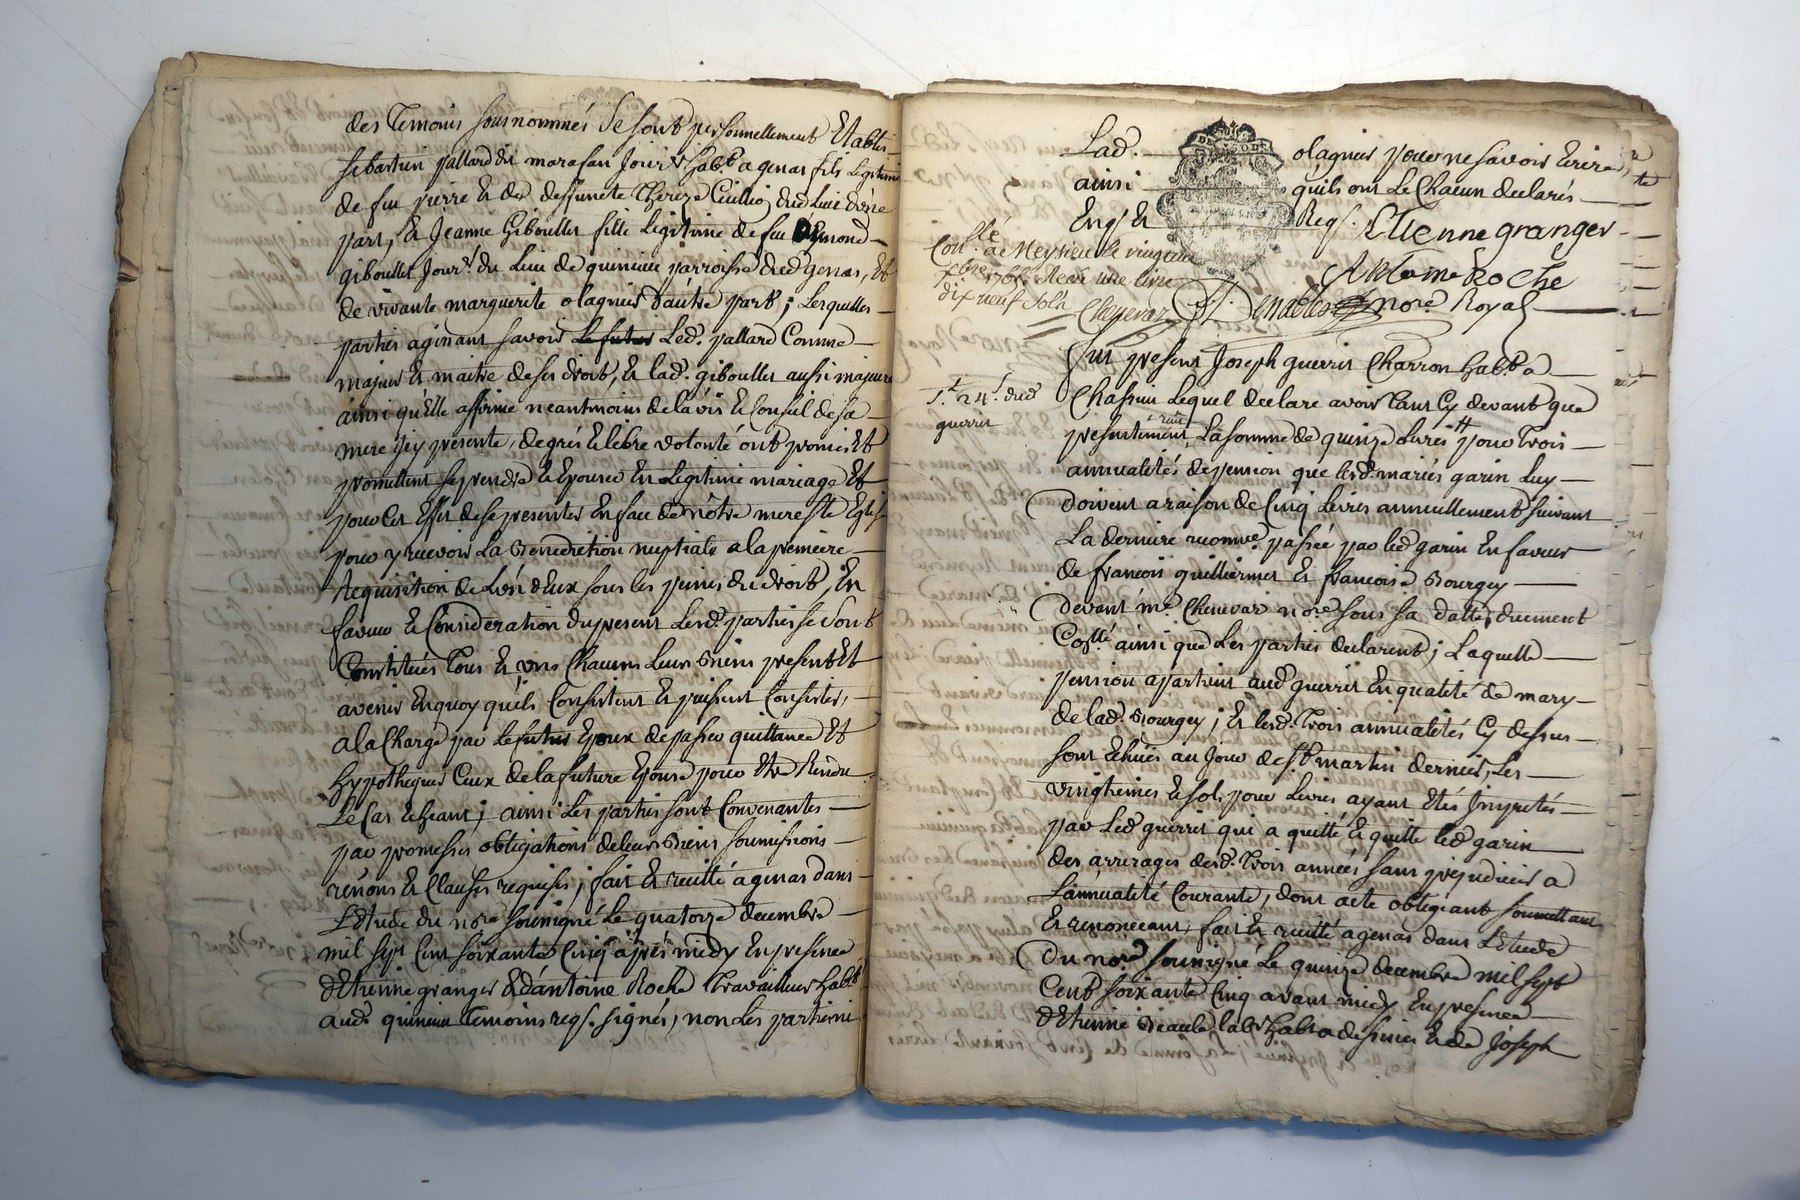 des Temoins sousnommés Se sont personnellement Etablis
sebastien pallard dit marasan Jour.r hab.t a genas fils Legitime
de feu pierre Et de deffuncte Thereze Cuillio dud Lieu d'une
part, Et Jeanne Giboullet fille Legitime de feu Eymond
giboullet Jour.r du Lieu de quincieu parroisse dud genas, Et
de vivante marguerite olagnier d'autre part ; Lesquelles
parties agissant savoir Led. pallard Comme
majeur Et maitre de ses droits, Et lad. giboullet aussi majeure
ainsi qu'Elle affirme neantmoins de l'avis Et Conseil de sa
mere icy presente, de grés Et libre volonté ont promis Et
promettent se prendre Et Epouser En Legitime mariage Et
pour Cet Effet de se presenter En face de nôtre mere s.te Eglise
pour y recevoir La Benediction nuptiale a la premiere
Requisition de L'un d'Eux sous les peines de droit, En
faveur Et Consideration du present Lesd. parties se sont
Constitués Tous Et uns Chacuns Leurs Biens presents Et
avenir En quoy qu'ils Consistent Et puissent Consister,
a la Charge par Le futur Epoux de passer quittance Et
hypothequer Ceux de la future Epouse pour Etre Rendu
Le Cas Echeant ; ainsi Les parties sont Convenantes
par promesses obligations de leurs Biens soumissions
renons Et Clauses requises, fait Et recitté a genas dans
L'Etude du no.re soussigné Le quatorze decembre
mil sept Cent soixante Cinq après midy En presence
d'Etienne granger Et d'antoine Roche Travailleurs hab.ts
aud. quincieu Temoins req.s signés, non Les parties ni
Lad. olagnier pour ne savoir Ecrire,
ainsi qu'ils ont Le Chacun declarés
Enq.s Et Req.s Etienne granger
Antoine Roche
no.re Royal
Con.llé a Meysieu le vingt
xbre 1765 Recu une livre
dix neuf sols
Chevevar
Fut present Joseph guerrit Charron hab.t a
Chassieu Lequel declare avoir Tant Cy devant que
presentement reçu La somme de quinze Livres pour Trois
annualités de pension que Lesd. mariés garin Luy
Doivent a raison de Cinq Livres annuellement suivant
La derniere reconn.ce passée par led garin En faveur
de francois guilliermet Et francoise Bourgey
devant m.e Chevevar no.re sous sa datte duement
Con.llé ainsi que Les parties declarent ; Laquelle
pension apartient aud guerrit En qualité de mary
de lad. Bourgey ; Et lesd. Trois annualités Cy dessus
sont Echües au Jour de S.t martin dernier, Les
vingtiemes Et sols pour Livres ayant Etés Imputés
par Led guerrit qui a quitté Et quitte led garin
des arrerages desd. Trois années sans prejudicier a
L'annualité Courante, dont acte obligeant soumettant
Et renonceant, fait Et recitté a genas dans L'Etude
Du no.re soussigné Le quinze decembre mil sept
Cent soixante Cinq avant midy En presence
d'Etienne lab.r hab.t a Et de Joseph
24.s dud
guerrit